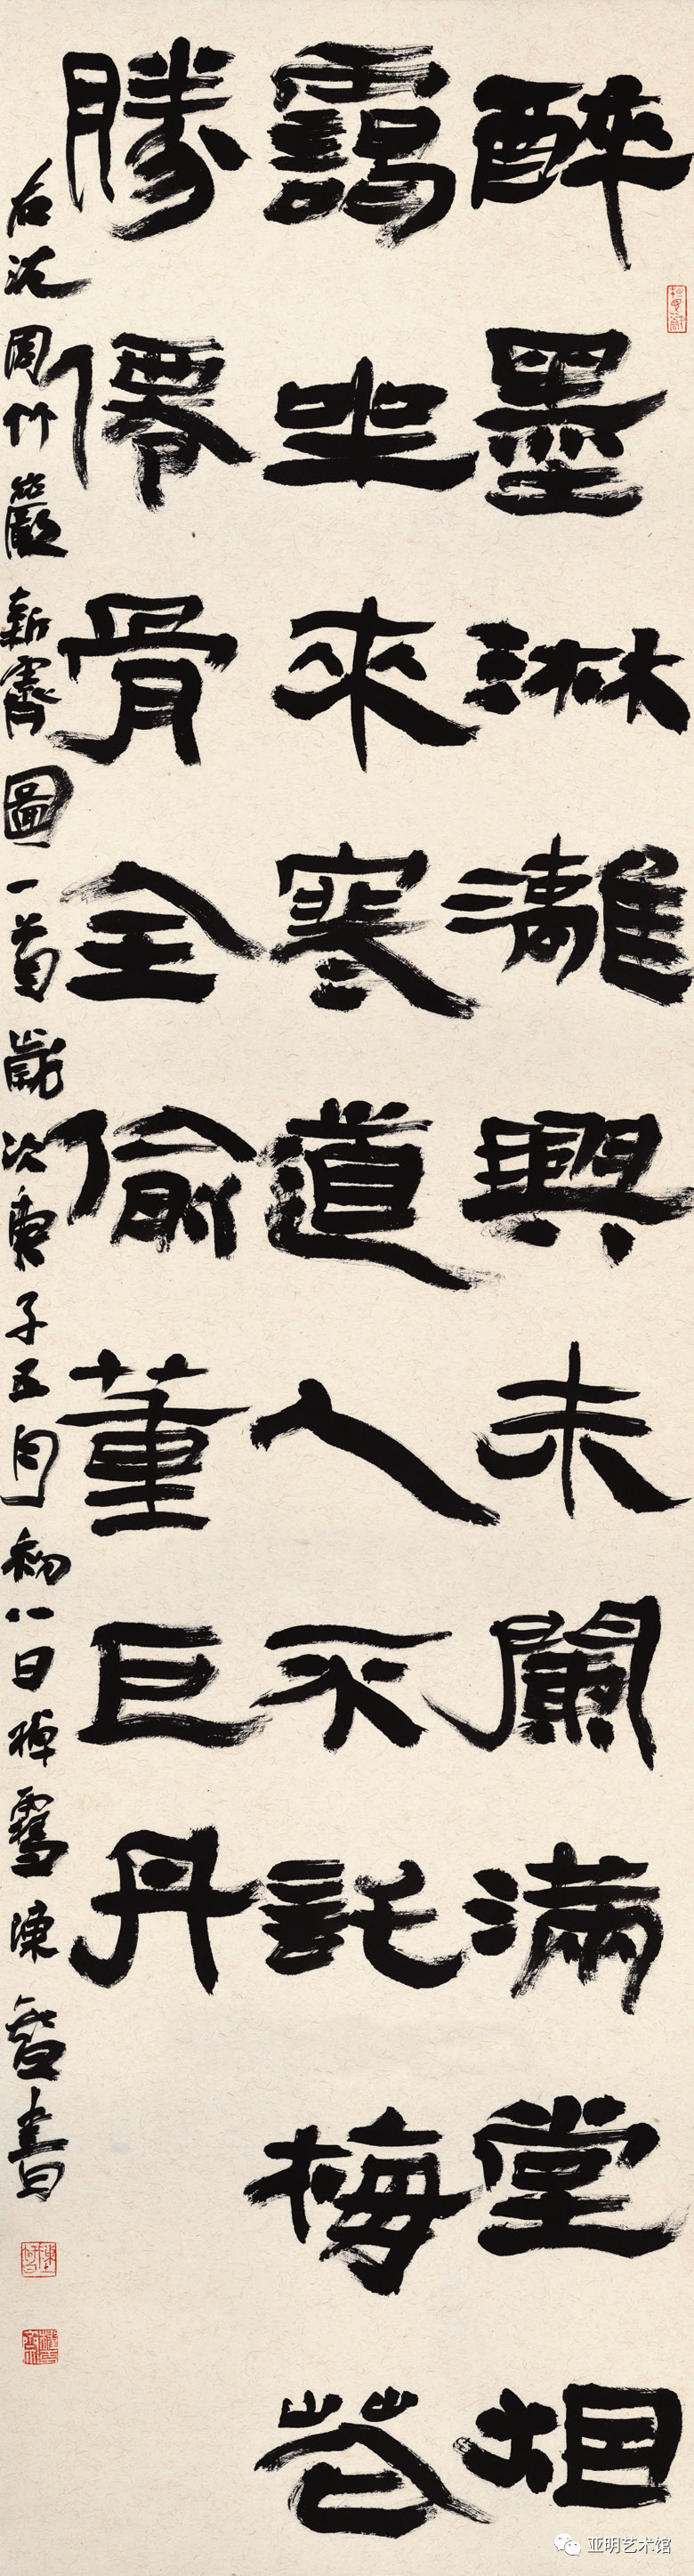 醉墨淋漓興未闌滿堂烟
靄坐來寒道人不託梅花
勝僊骨全偷董巨丹
右沈周竹巖新霽圖一首歲次庚子五月初八日 雪陳智書
亚明艺术馆